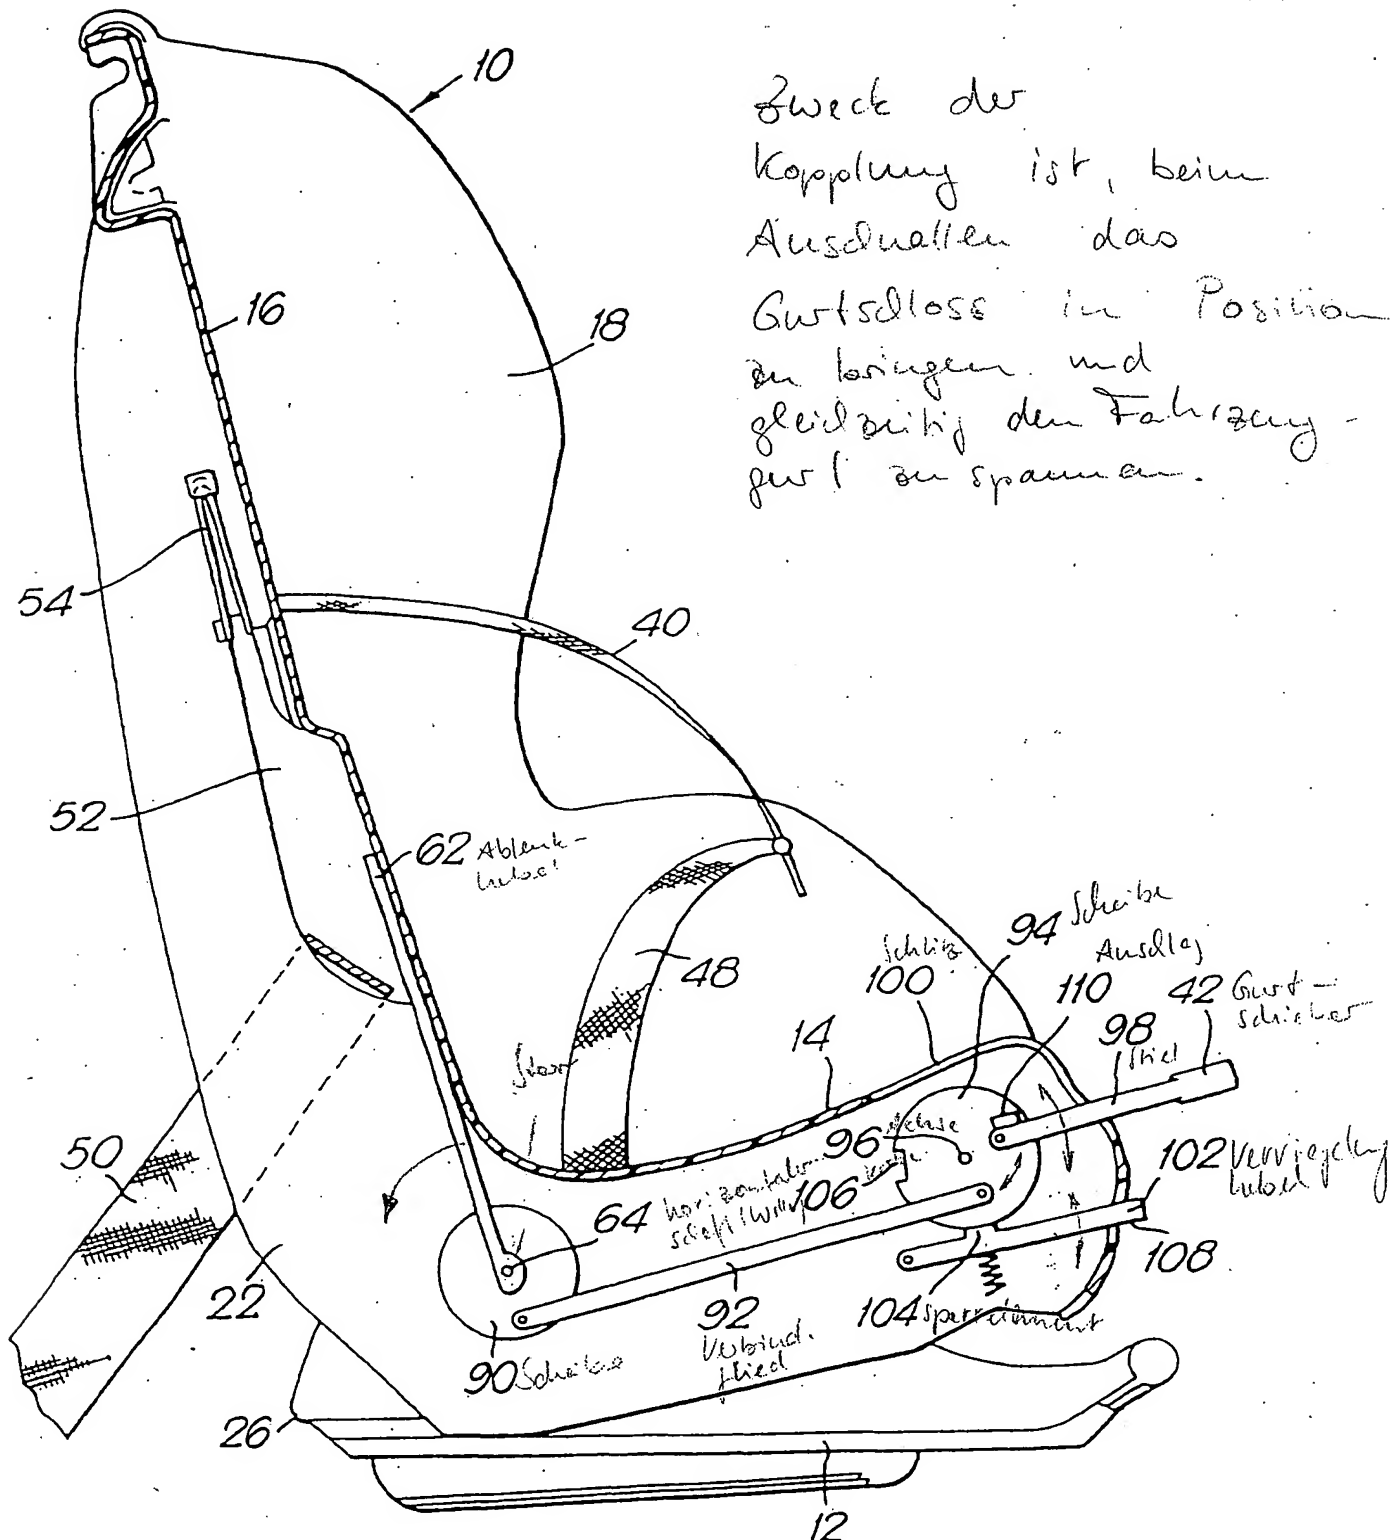 10
Zweck der
Kopplung ist, beim
Anschnallen das
Gurtschloss in Position
zu bringen und
gleichzeitig den Fahrzeug-
gurt zu spannen.
16
18
54
40
52
62 Ablenk-
hebel
94 Scheibe
Schlitz
100
Anschlag
110
42 Gurt-
98
Stiel
48
14
starr
96 Achse
106
102 Verriegelung
hebel
50
64 horizontaler
108
22
92
Verbind.
glied
104 Sperrelement
90 Scheibe
26
12